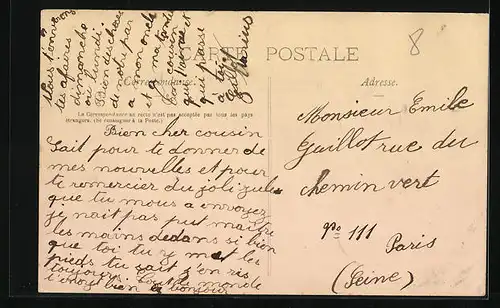 CARTE POSTALE
Correspondance.
Adresse.
La Correspondance au recto n'est pas acceptée par tous les pays
étrangers. (Se renseigner à la Poste.)
8
Bien cher cousin
Sait pour te donner de
mes nouvelles et pour
te remercier du joli
que tu mous a envoyez
je nait pas put maitre
les mains dedans si bien
que toi tu y met les
pieds tu sait j'en ris
toujours. Tout le monde
bien le bonjour
tes afaires
dimanche
ou lundi.
Bien des choses
de notre par
a mon oncle
et a ma tante
ton cousin
qui
qui passe
Guillot
Marius
Monsieur Emile
Guillot rue du
chemin vert
No 111
Paris
(Seine)